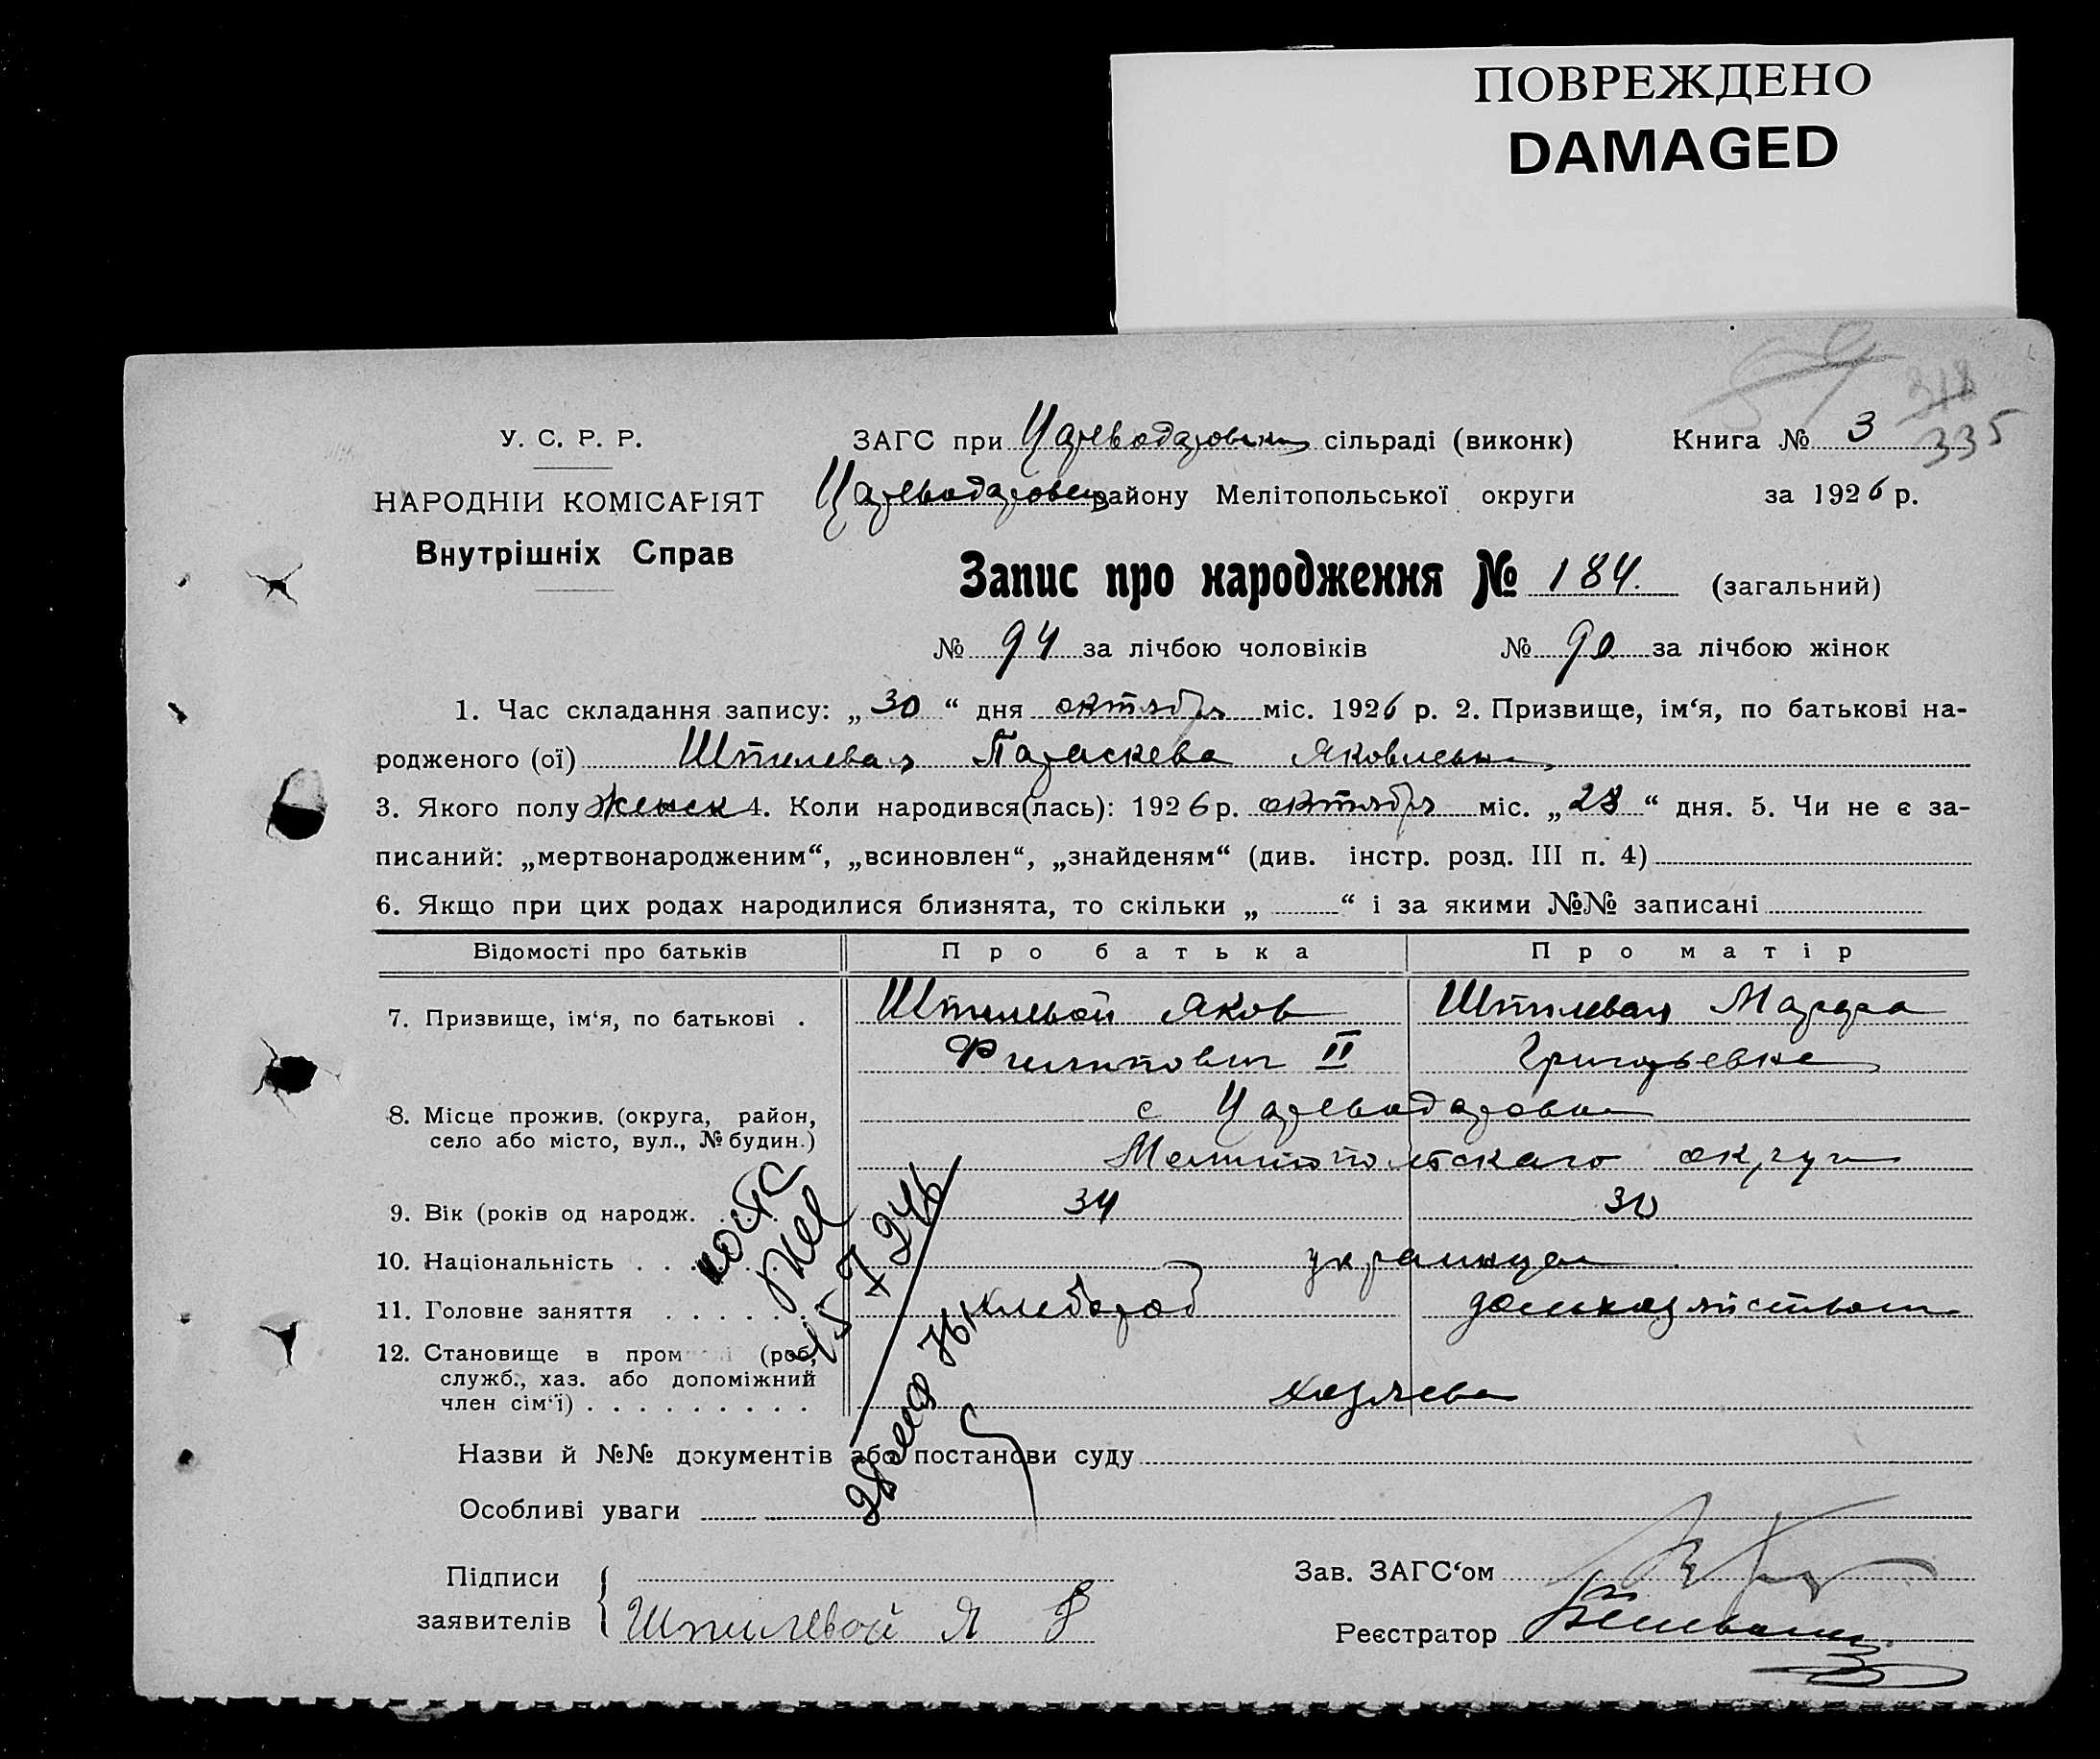 ПОВРЕЖДЕНО
DAMAGED
59
318
335
У. С. Р. Р.
НАРОДНІЙ КОМІСАРІЯТ
Внутрішніх Справ
ЗАГС при Цареводаровськ сільраді (виконк)
Книга № 3
Цареводаровск району Мелітопольської округи
за 1926 р.
Запис про народження № 184. (загальний)
№ 94 за лічбою чоловіків № 90 за лічбою жінок
1. Час складання запису: „30“ дня октября міс. 1926 р. 2. Призвище, ім‘я, по батькові на-
родженого (ої) Шпилевая Параскева Яковлевна
3. Якого полу женск 4. Коли народився(лась): 1926 р. октября міс. „28“ дня. 5. Чи не є за-
писаний: „мертвонародженим“, „всиновлен“, „знайденям“ (див. інстр. розд. III п. 4)
6. Якщо при цих родах народилися близнята, то скільки „ “ і за якими №№ записані
Відомості про батьків Про батька Про матір
7. Призвище, ім‘я, по батькові . Шпилевой Яков Шпилевая Марфа
Филипович II Григорьевна
8. Місце прожив. (округа, район,
село або місто, вул., № будин.)
с Цареводаровка
Мелитопольскаго округа
9. Вік (років од народж. 34 30
10. Національність . . . . украинцы
11. Головне заняття . . . . . . Хлебороб домхозяйством
12. Становище в пром (роб,
служб., хаз. або допоміжний
член сім‘ї) . . . . . . . . . хозяева
Назви й №№ документів або постанови суду
Особливі уваги
Підписи
заявителів
Шпилевой Я Ф
Зав. ЗАГС‘ом
Реєстратор